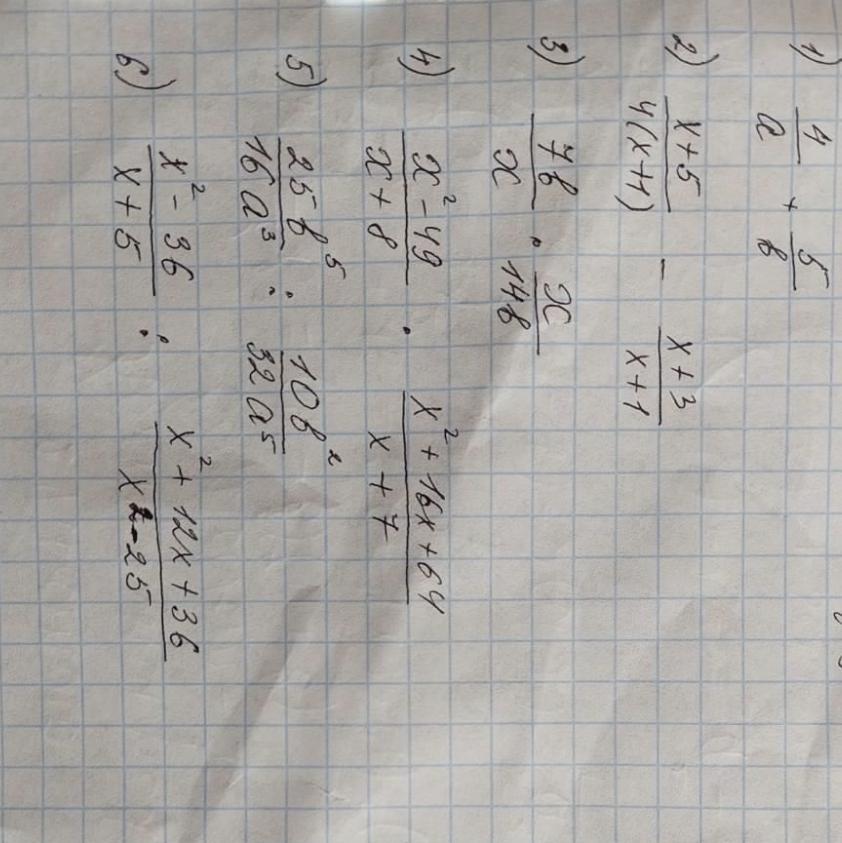 1) 4/a + 5/b
2) x+5/4(x+1) - x+3/x+1
3) 7b/x · x/14b
4) x²-49/x+8 · x²+16x+64/x+7
5) 25b⁵/16a³ : 10b²/32a⁵
6) x²-36/x+5 : x²+12x+36/x²-25